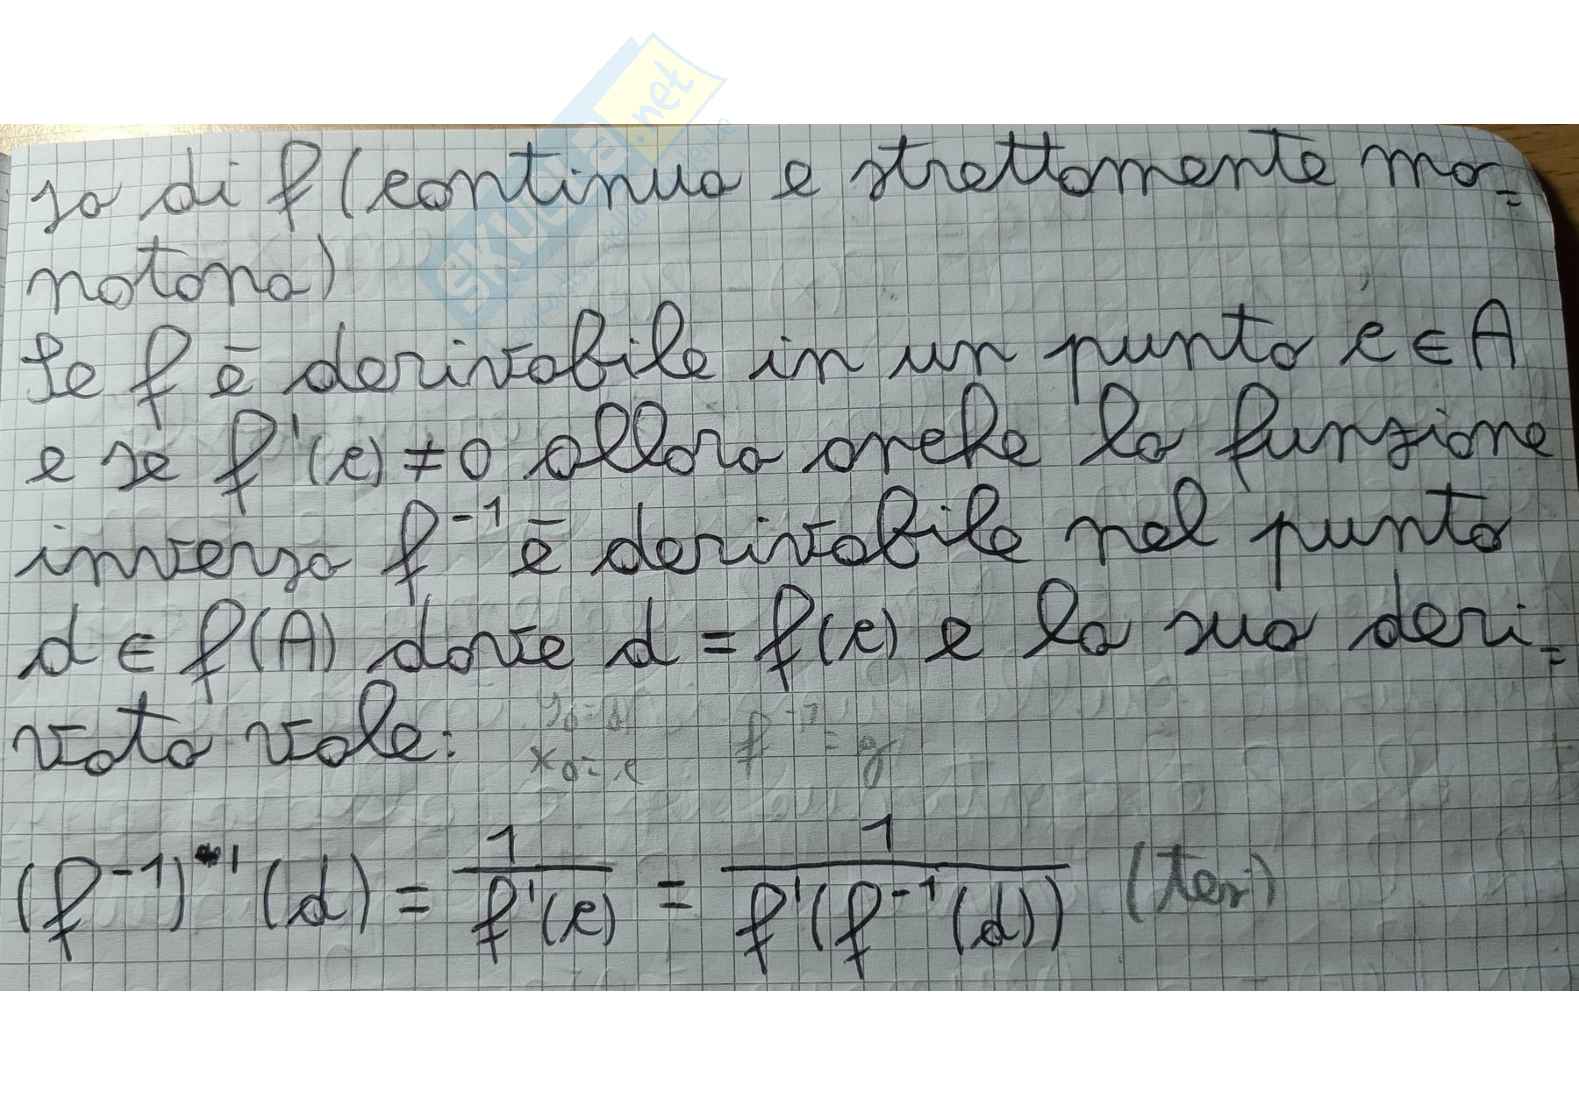 sa di f (continua e strettamente mo=
notona)
Se f è derivabile in un punto c ∈ A
e se f'(c) ≠ 0 allora anche la funzione
inversa f⁻¹ è derivabile nel punto
d ∈ f(A) dove d = f(c) e la sua deri=
vata vale:
x₀ = c f⁻¹ = g
(f⁻¹)'(d) = 1/f'(c) = 1/f'(f⁻¹(d)) (ter)
skuola.net